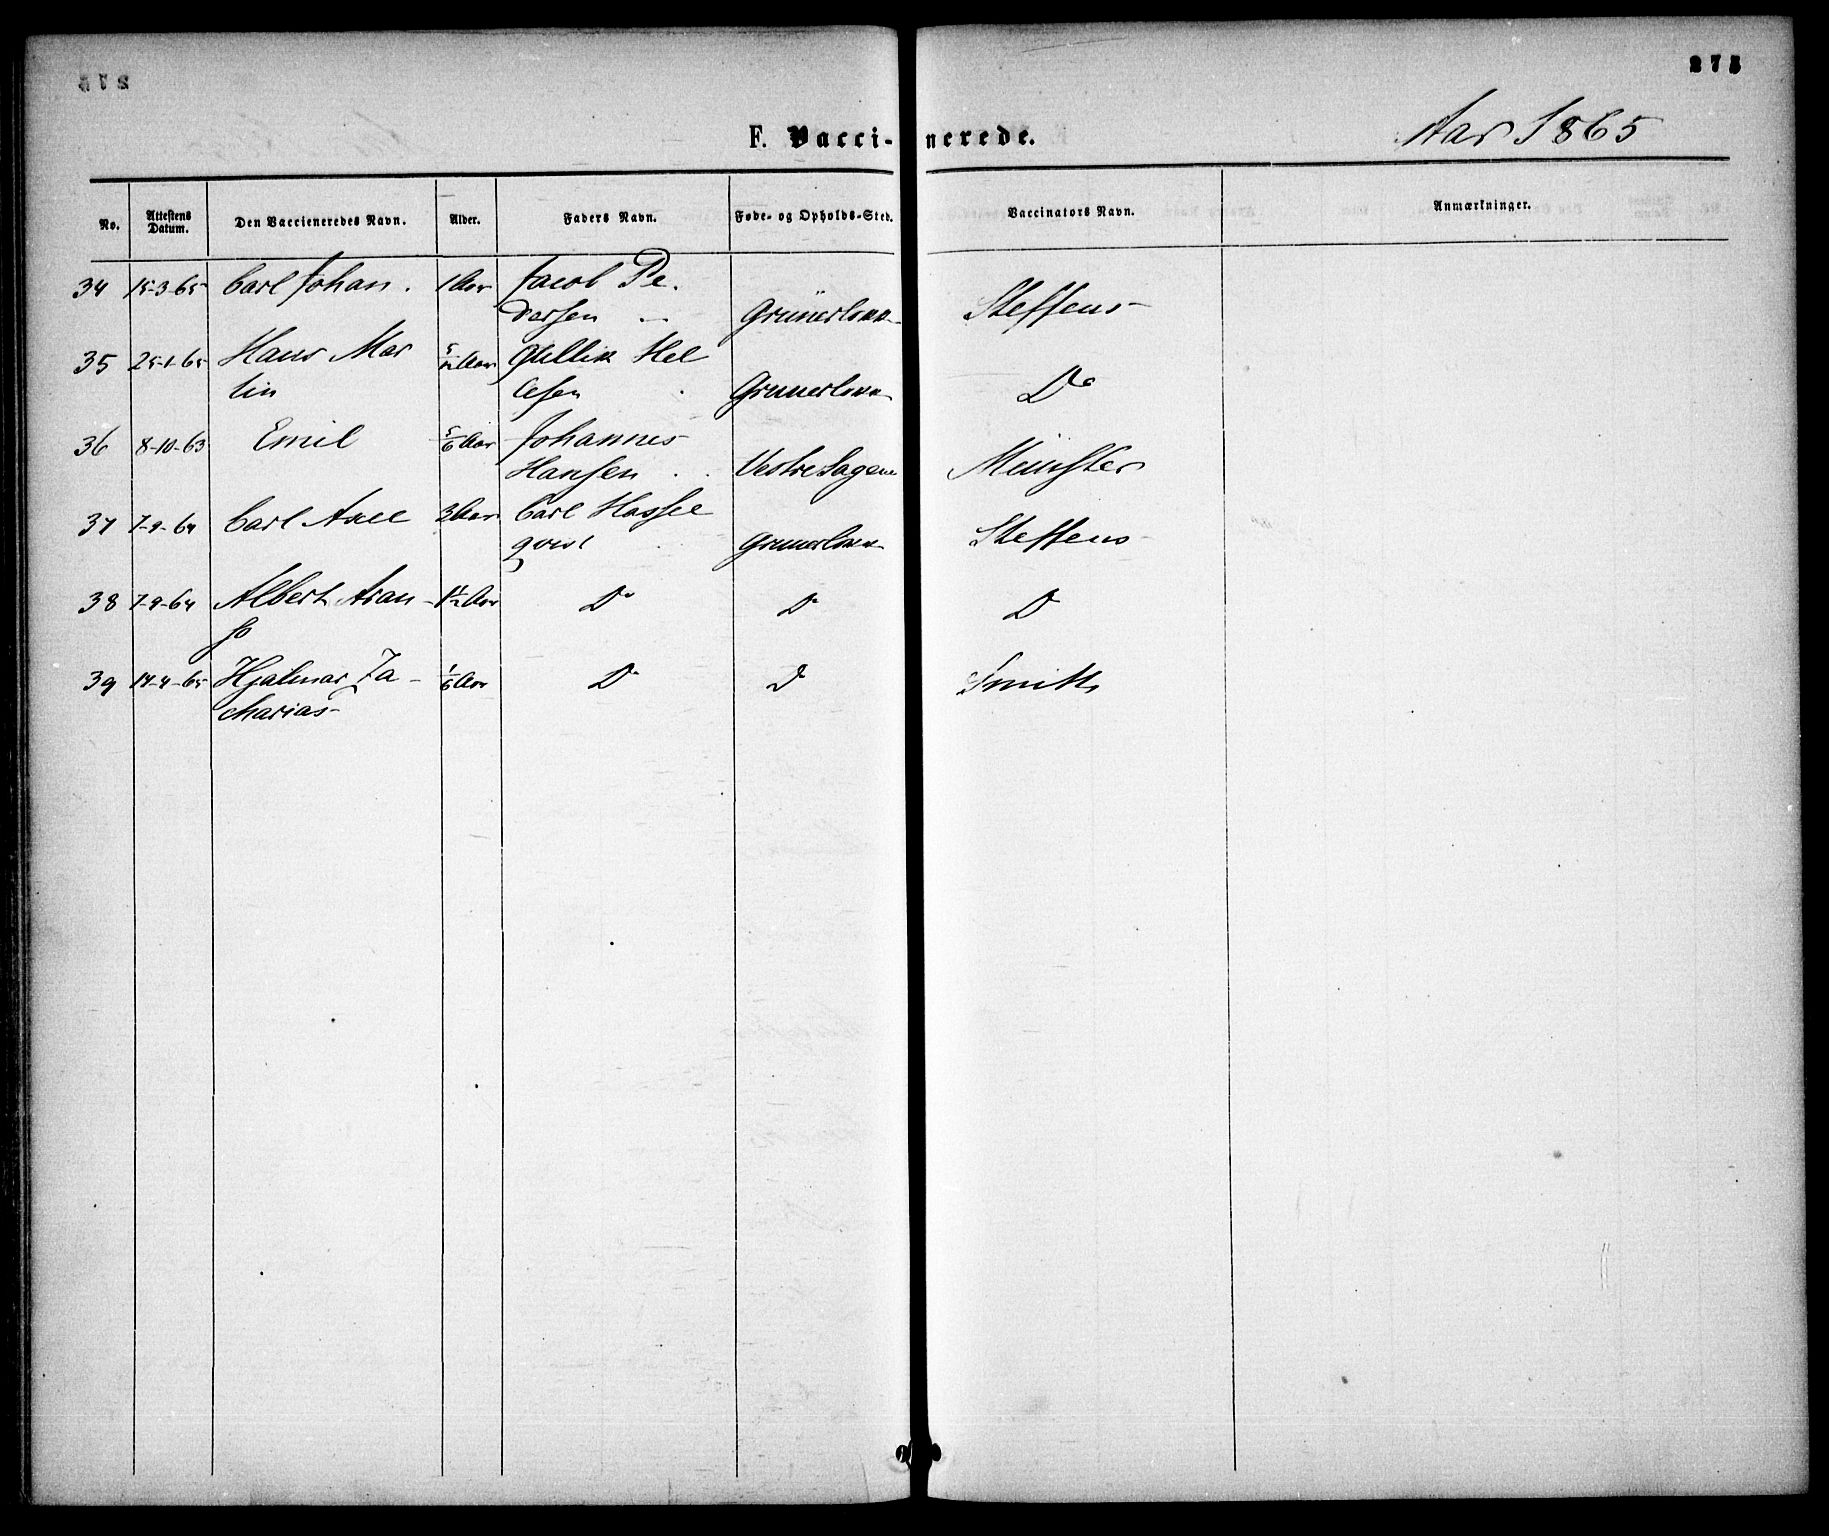 275
F. Vaccinerede.
Aar 1865
No. Attestens Datum. Den Vaccieneredes Navn. Alder. Faders Navn. Føde- og Opholds-Sted. Vaccinators Navn. Anmærkninger.
34 15-3-65 Carl Johan. 1 Aar Jacob Pe-
dersen Grünerløkk. Steffens
35 25-1-65 Hans Mar 5/12 Aar Gullik Hel
tin lesen Grunerløkk. Do
36 8-10-63 Emil 5/6 Aar Johannes
Hansen Vestre Sagene Münster
37 7-9-64 Carl Axel 3 Aar Carl Hassel
qvist Grunerløkk Steffens
38 7-9-64 Albert Aran- 1 1/2 Aar Do Do D
39 14-4-65 Hjalmar Za- 1/6 Aar Do D Smith
charias